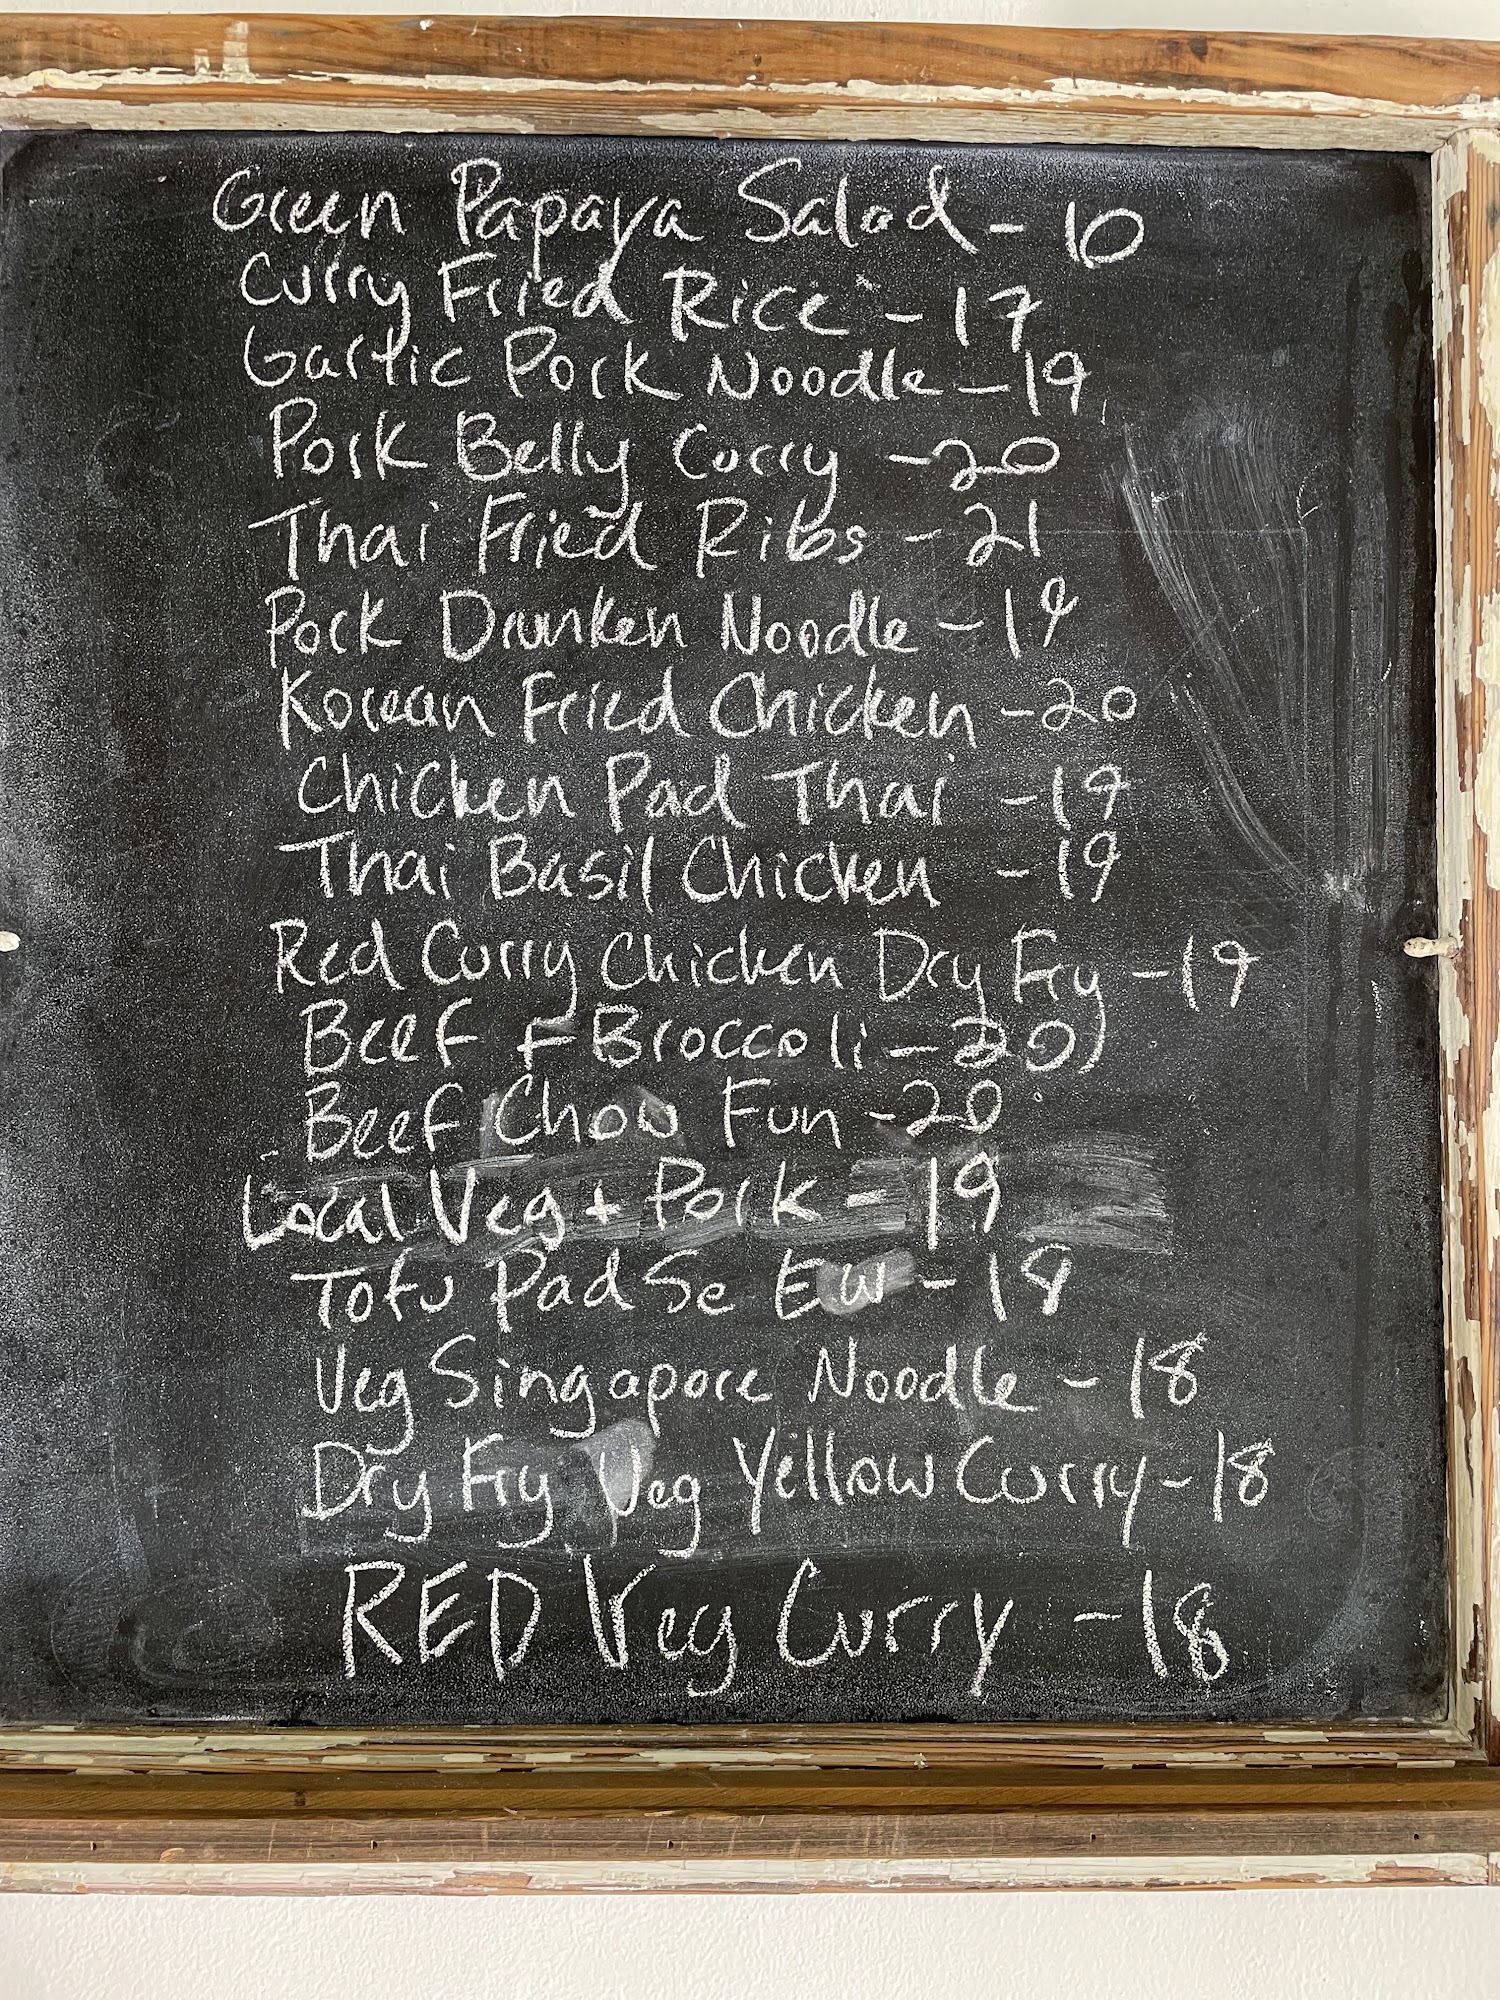 Green Papaya Salad - 10
Curry Fried Rice - 17
Garlic Pork Noodle - 19
Pork Belly Curry - 20
Thai Fried Ribs - 21
Pork Drunken Noodle - 19
Korean Fried Chicken - 20
Chicken Pad Thai - 19
Thai Basil Chicken - 19
Red Curry Chicken Dry Fry - 19
Beef + Broccoli - 20
Beef Chow Fun - 20
Local Veg + Pork - 19
Tofu Pad Se Ew - 18
Veg Singapore Noodle - 18
Dry Fry Veg Yellow Curry - 18
RED Veg Curry - 18